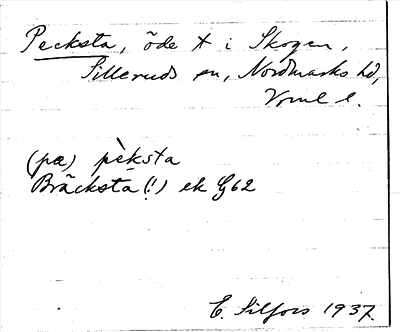 Pecksta, öde t i Skogen,
Silleruds sn, Nordmarks hd,
Vrml l.
(pæ) pèksta
Bräcksta (!) ek G62
E. Silfors 1937.